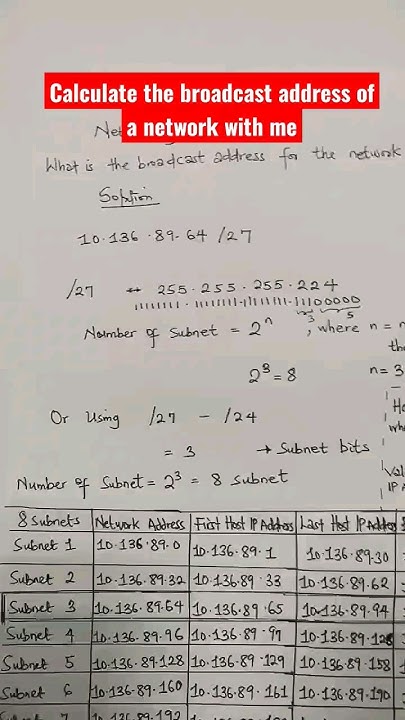 Calculate the broadcast address of
a network with me
What is the broadcast address for the network
Solution
10.136.89.64 /27
/27 ↔ 255.255.255.224
11111111.11111111.11111111.11100000
3 5
Number of Subnet = 2ⁿ , where n =
2³ = 8 n = 3
Or Using /27 - /24
= 3 → Subnet bits
Number of Subnet = 2³ = 8 subnet
8 Subnets Network Address First Host IP Address Last Host IP Address
Subnet 1 10.136.89.0 10.136.89.1 10.136.89.30
Subnet 2 10.136.89.32 10.136.89.33 10.136.89.62
Subnet 3 10.136.89.64 10.136.89.65 10.136.89.94
Subnet 4 10.136.89.96 10.136.89.97 10.136.89.126
Subnet 5 10.136.89.128 10.136.89.129 10.136.89.158
Subnet 6 10.136.89.160 10.136.89.161 10.136.89.190
10.136.89.192